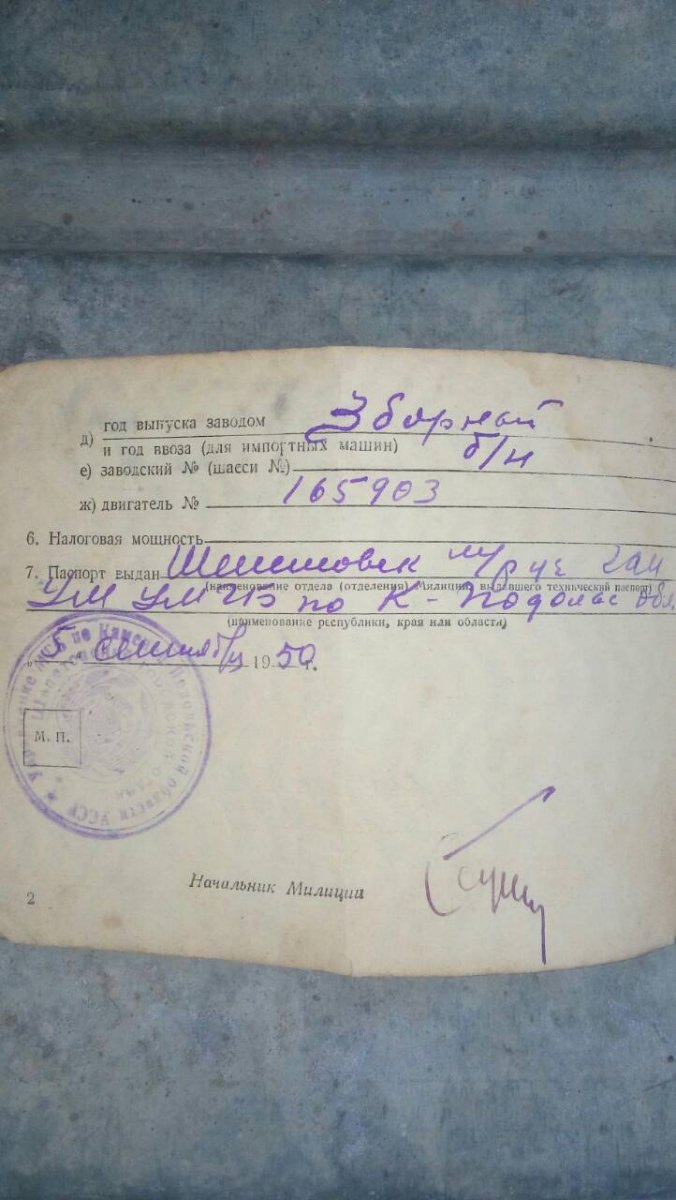 год выпуска заводом Зборный
д)
и год ввоза (для импортных машин)
е) заводский № (шасси №) б/н
ж) двигатель № 165903
6. Налоговая мощность
7. Паспорт выдан Шепетовск м/р
(наименование отдела (отделения) Милиции, выдавшего технический паспорт)
УМ УМГБ по К-Подольс обл.
(наименование республики, края или области)
"5" сентября 1950 г.
М. П.
Начальник Милиции
2